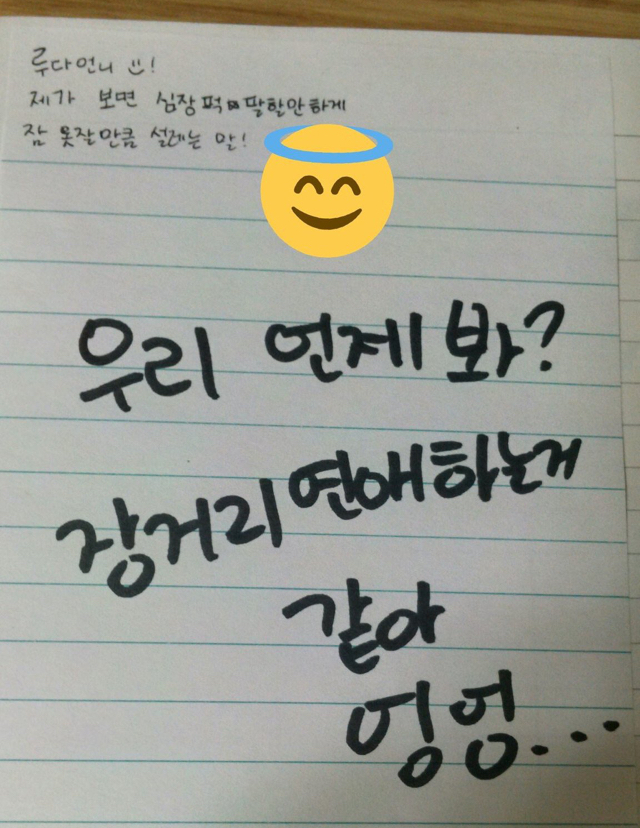 루다언니 ☺!
제가 보면 심장 퍽 팔할만하게
잠 못잘만큼 설레는 말!
우리 언제 봐?
장거리 연애하는거
같아
엉엉...